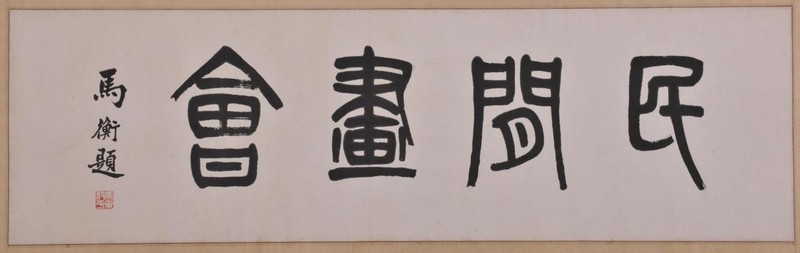 民間畫會
馬衡題